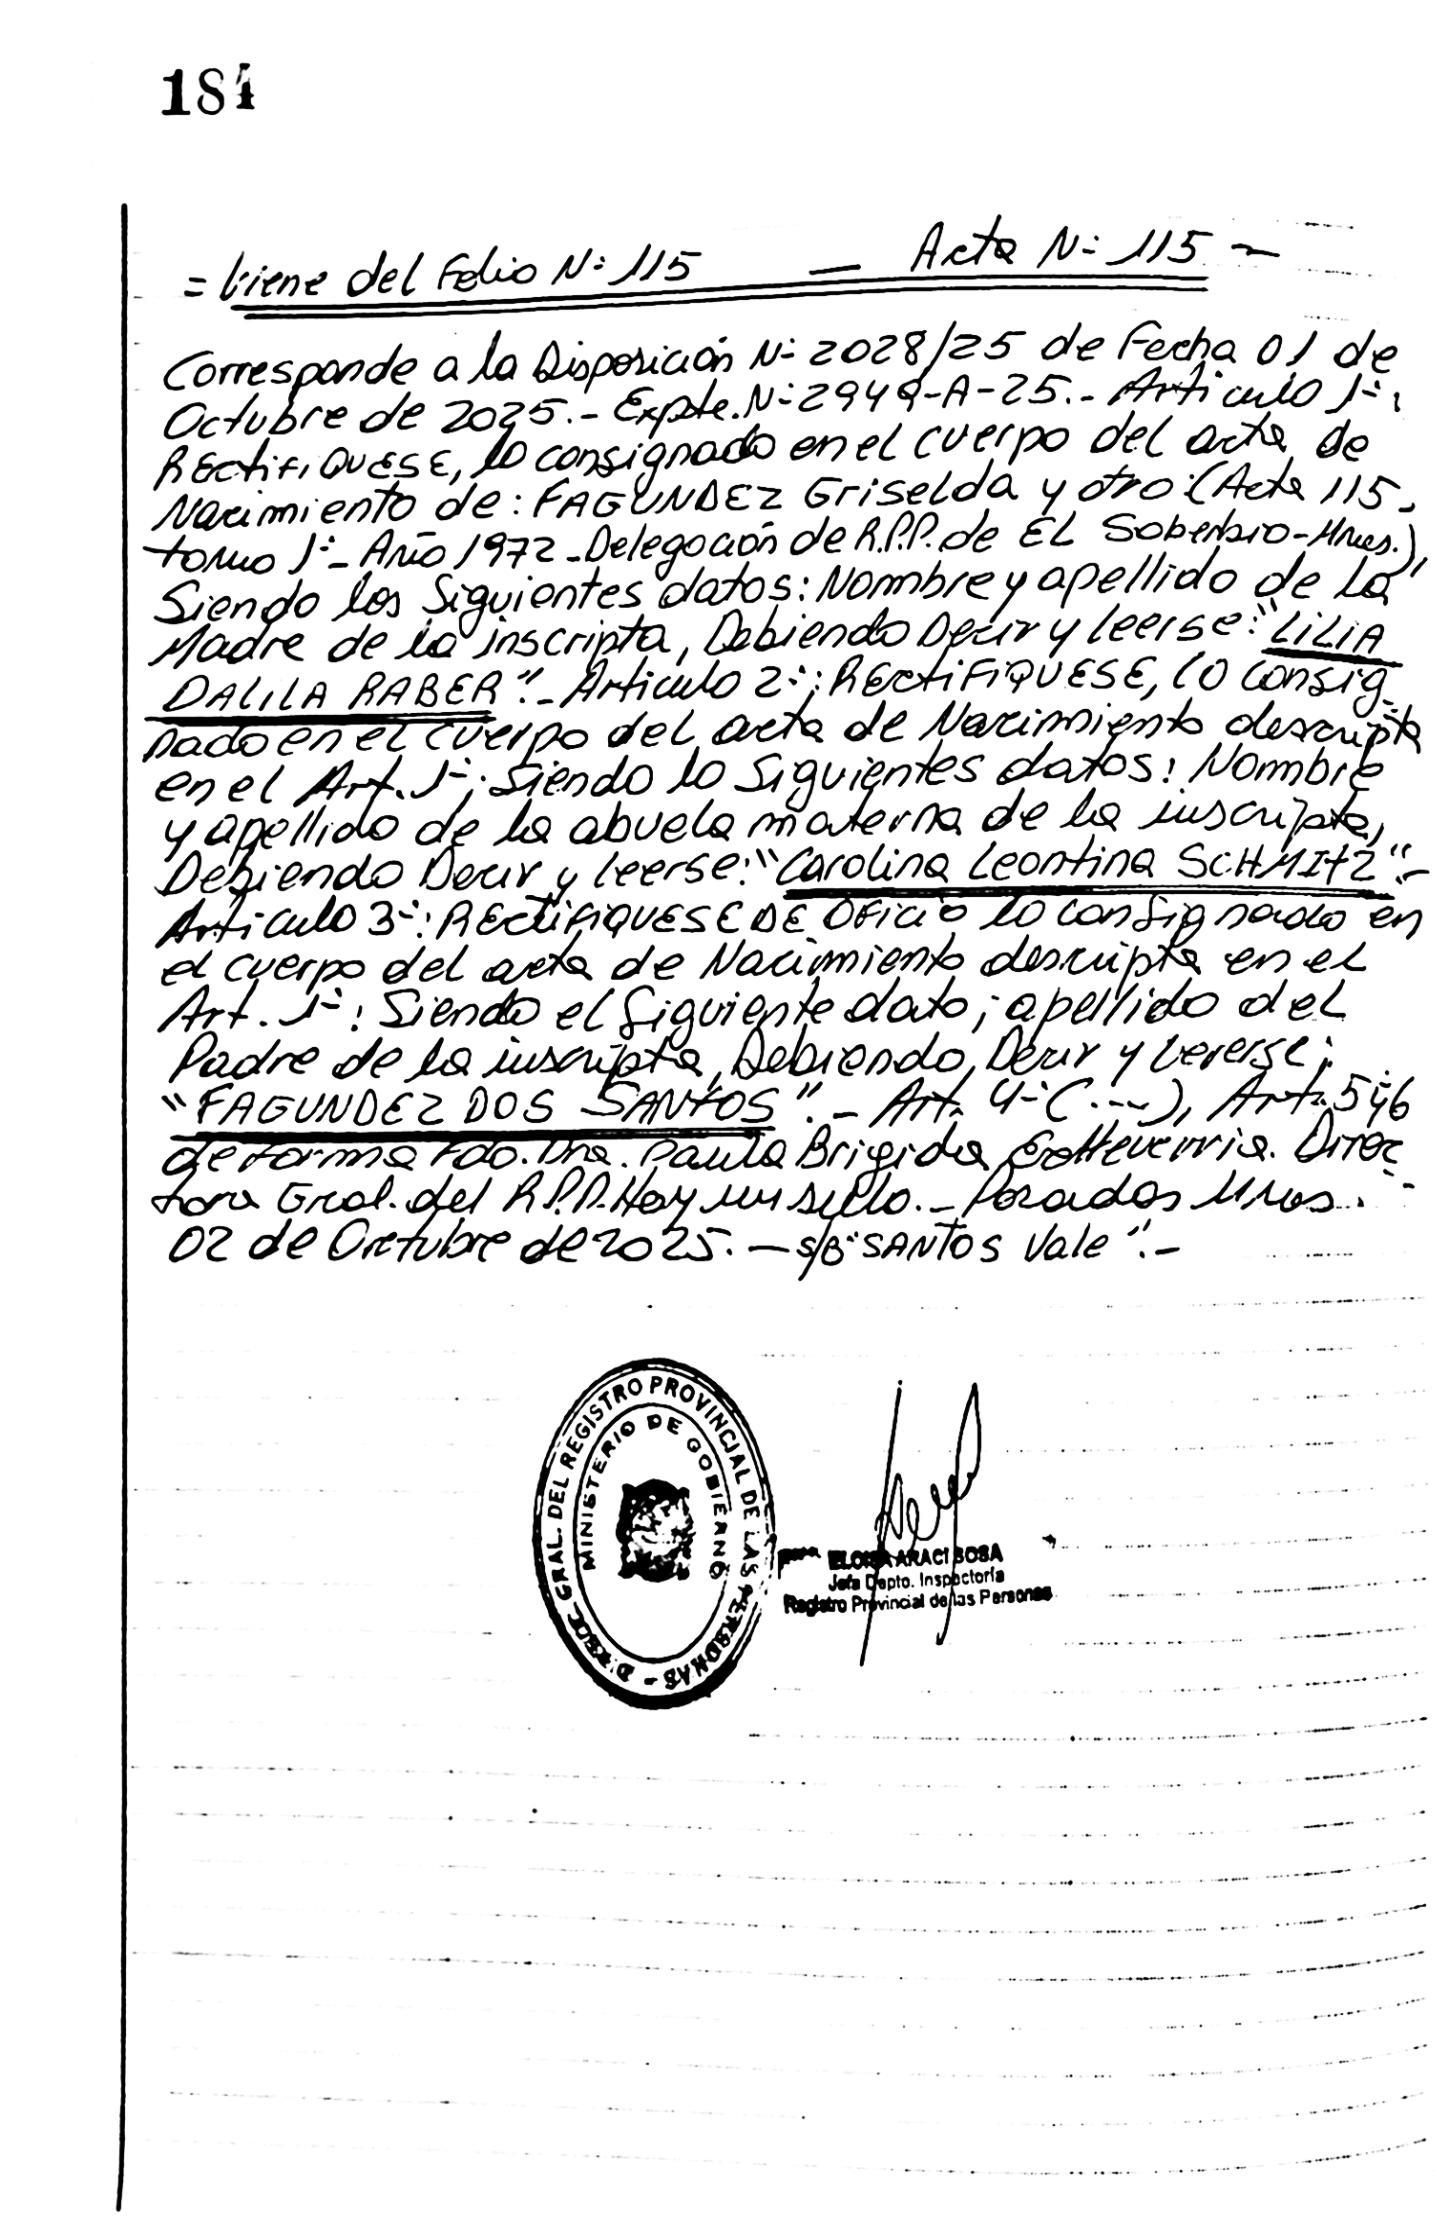 184
= Viene del Folio N: 115 — Acta N: 115 -
Corresponde a la Disposición N: 2028/25 de Fecha 01 de
Octubre de 2025.- Expte. N: 2949-A-25.- Articulo 1-:
RECtiFiQUESE, lo consignado en el cuerpo del acta de
Nacimiento de: FAGUNDEZ Griselda y otro: (Acta 115,
tomo 1:- Año 1972 - Delegación de R.P.P. de EL Soberbio-Mnes.),
Siendo los Siguientes datos: Nombre y apellido de la
Madre de la inscripta, Debiendo Decir y leerse: "LiLIA
DALILA RABER".- Articulo 2-: RECtiFiQUESE, lo consig-
nado en el cuerpo del acta de Nacimiento descripta
en el Art. 1-: Siendo lo Siguientes datos: Nombre
y apellido de la abuela materna de la inscripta,
Debiendo Decir y leerse: "Carolina Leontina SCHMItZ".-
Articulo 3-: RECtiFiQUESE DE OFiCiO lo consignado en
el cuerpo del acta de Nacimiento descripta en el
Art. 1-: Siendo el Siguiente dato; apellido del
Padre de la inscripta, Debiendo, Decir y Leerse:
"FAGUNDEZ DOS SANTOS".- Art. 4-(...), Art. 5 y 6
de forma Fdo. Dra. Paula Brigida Echeverria. Direc-
tora Gral. del R.P.P. Hay un sello.- Posadas Mnes.
02 de Octubre de 2025. — S/B "SANTOS Vale".-
DIREC. GRAL. DEL REGISTRO PROVINCIAL DE LAS PERSONAS -
MINISTERIO DE GOBIERNO
ELOISA ARACI SOSA
Jefa Depto. Inspectoría
Registro Provincial de las Personas